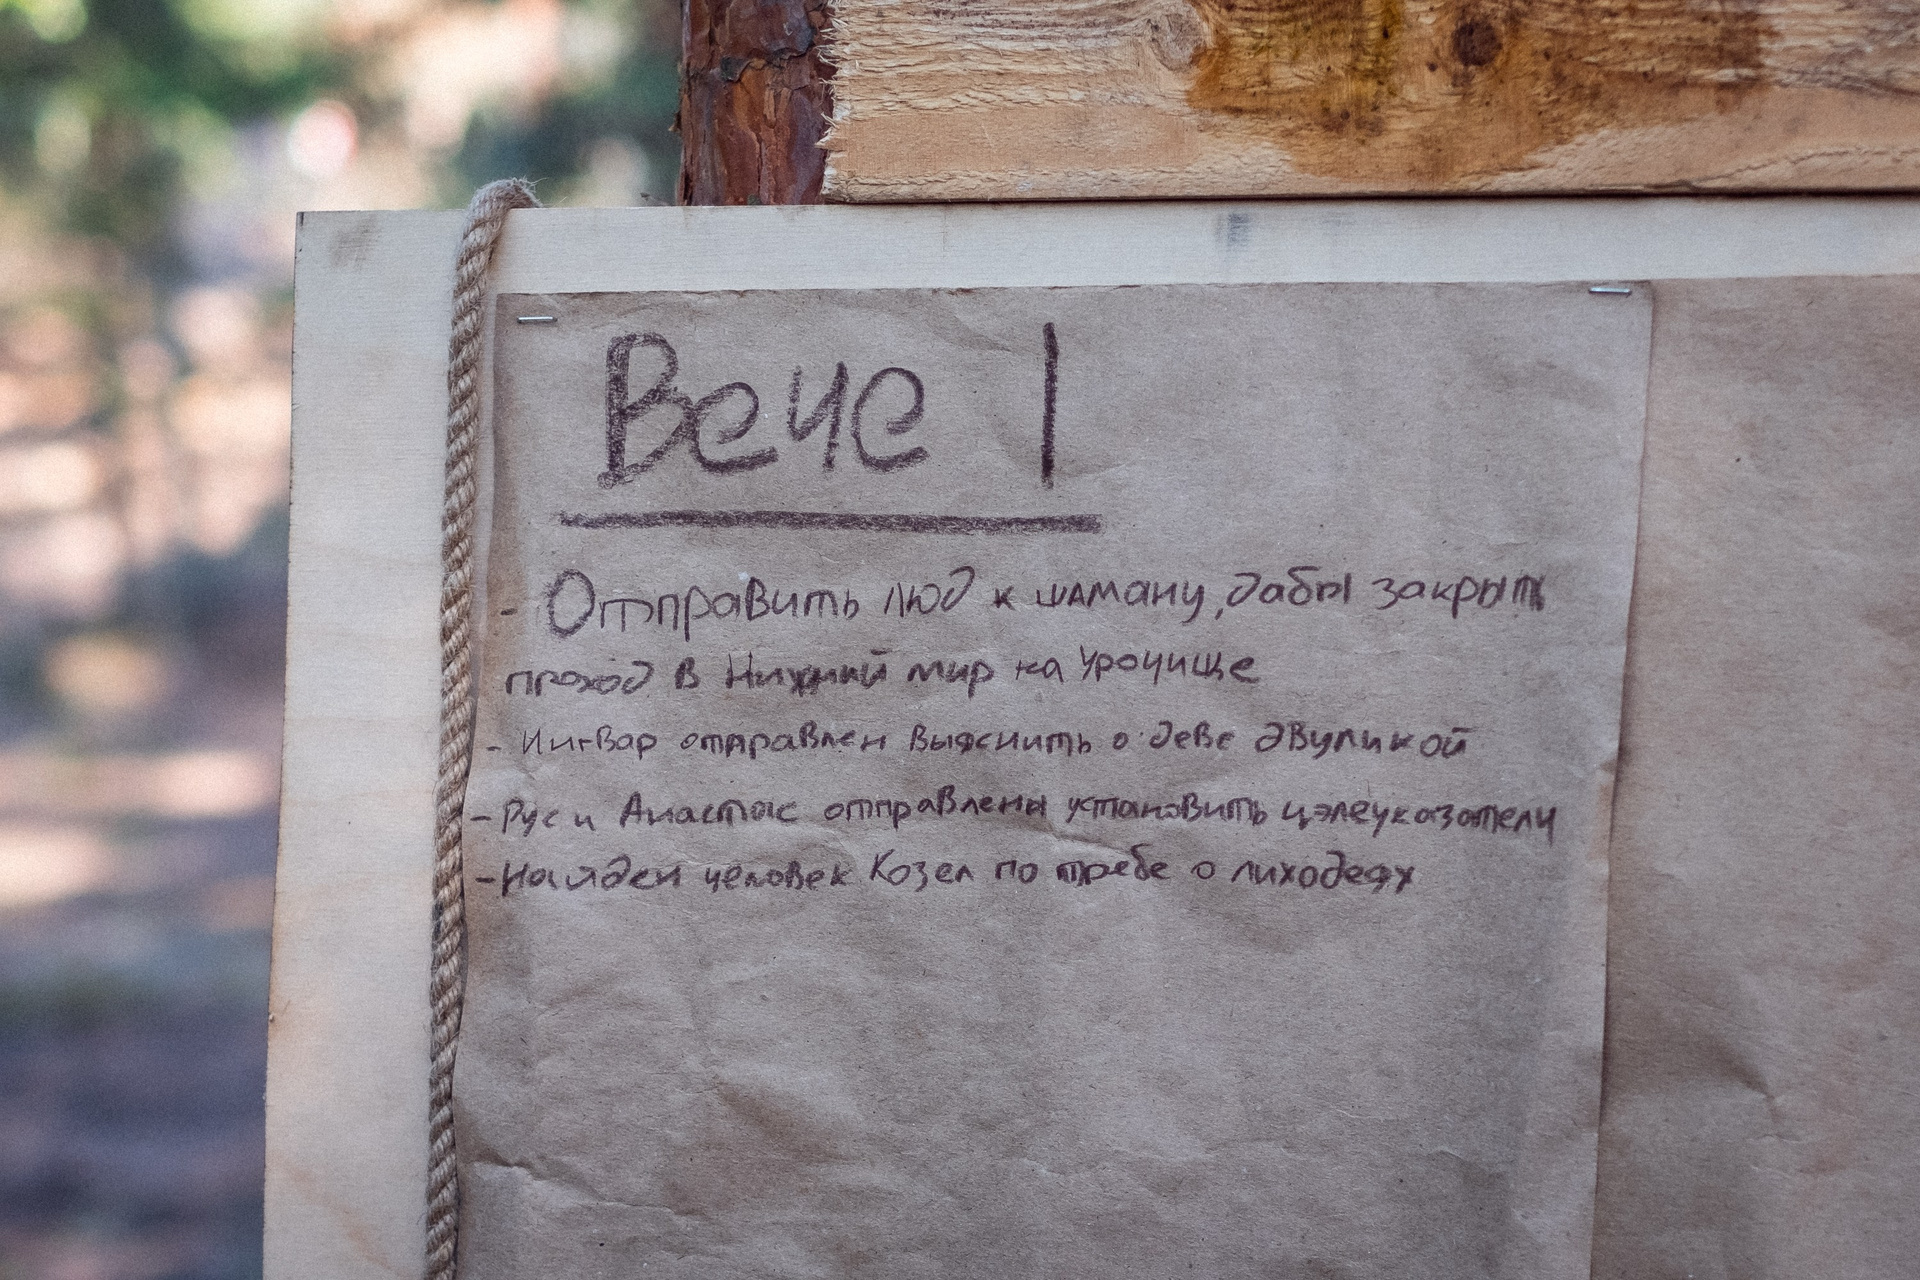 Вече 1
- Отправить люд к шаману, дабы закрыть
проход в Нижний мир на Урочище
- Ингвар отправлен выяснить о деве двуликой
- Рус и Анастас отправлены установить цэлеуказатели
- Найден человек Козел по требе о лиходеях